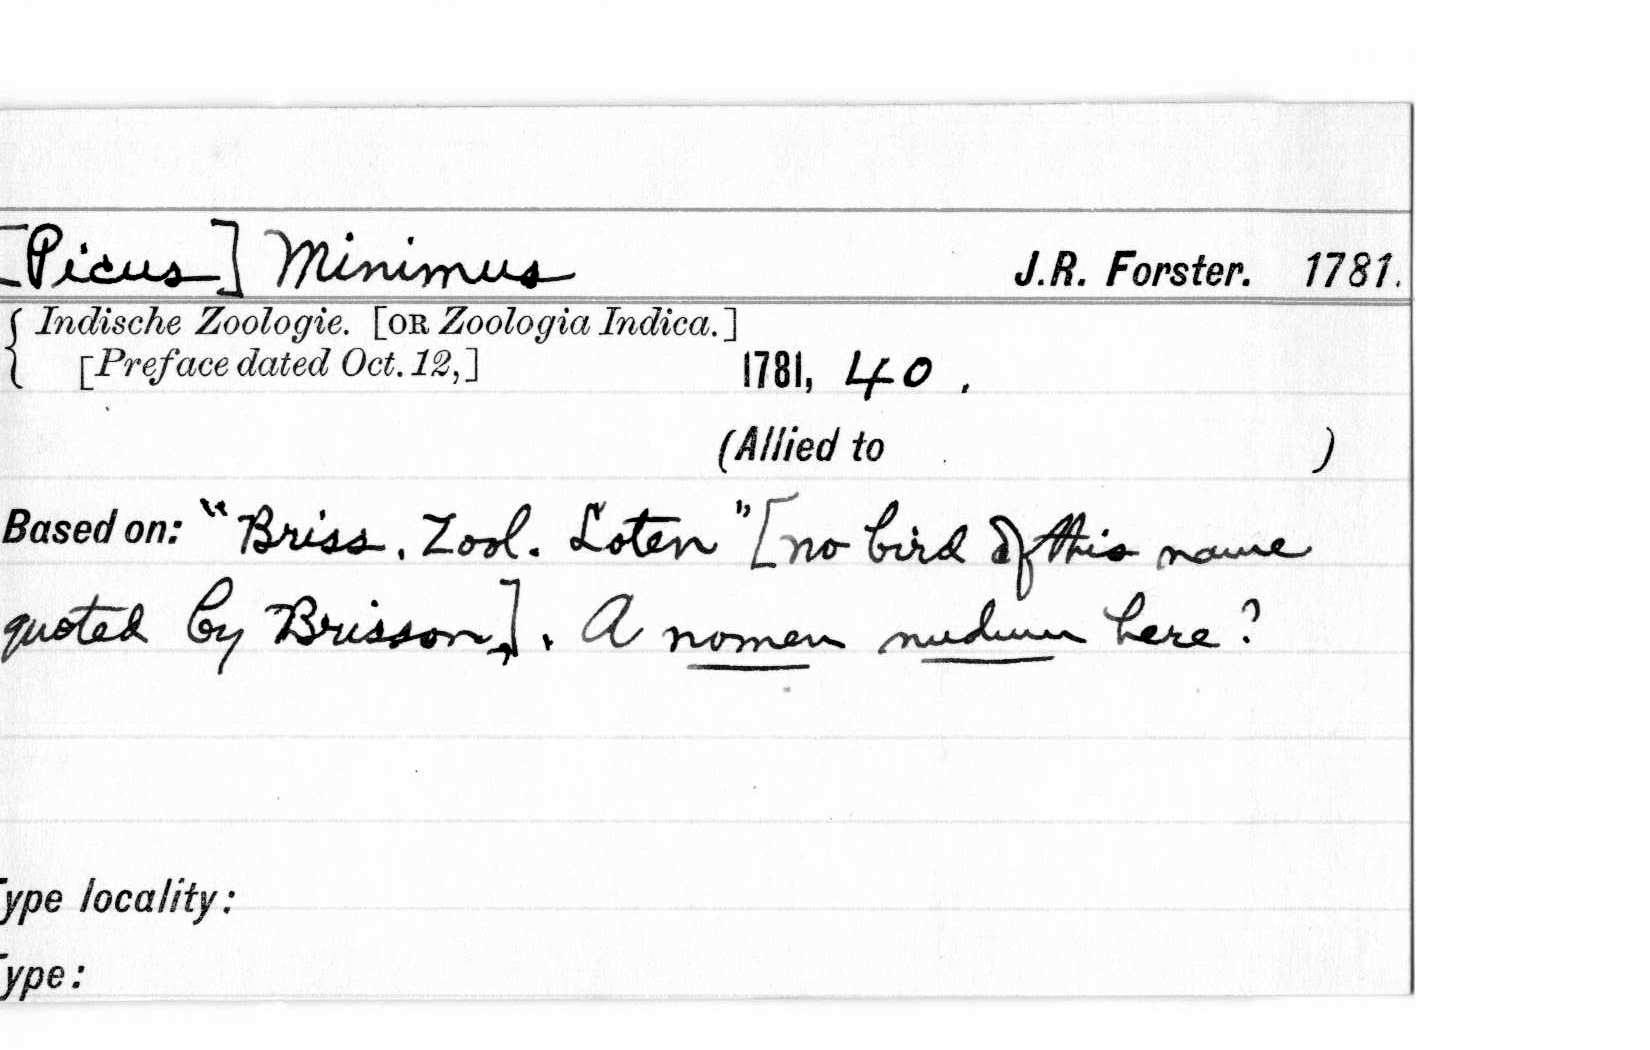 [Picus] Minimus J.R. Forster. 1781.
{ Indische Zoologie. [OR Zoologia Indica.]
[Preface dated Oct. 12,] 1781, 40.
(Allied to )
Based on: "Briss. Zool. Loten" [no bird of this name
quoted by Brisson]. A nomen nudum here?
Type locality:
Type: